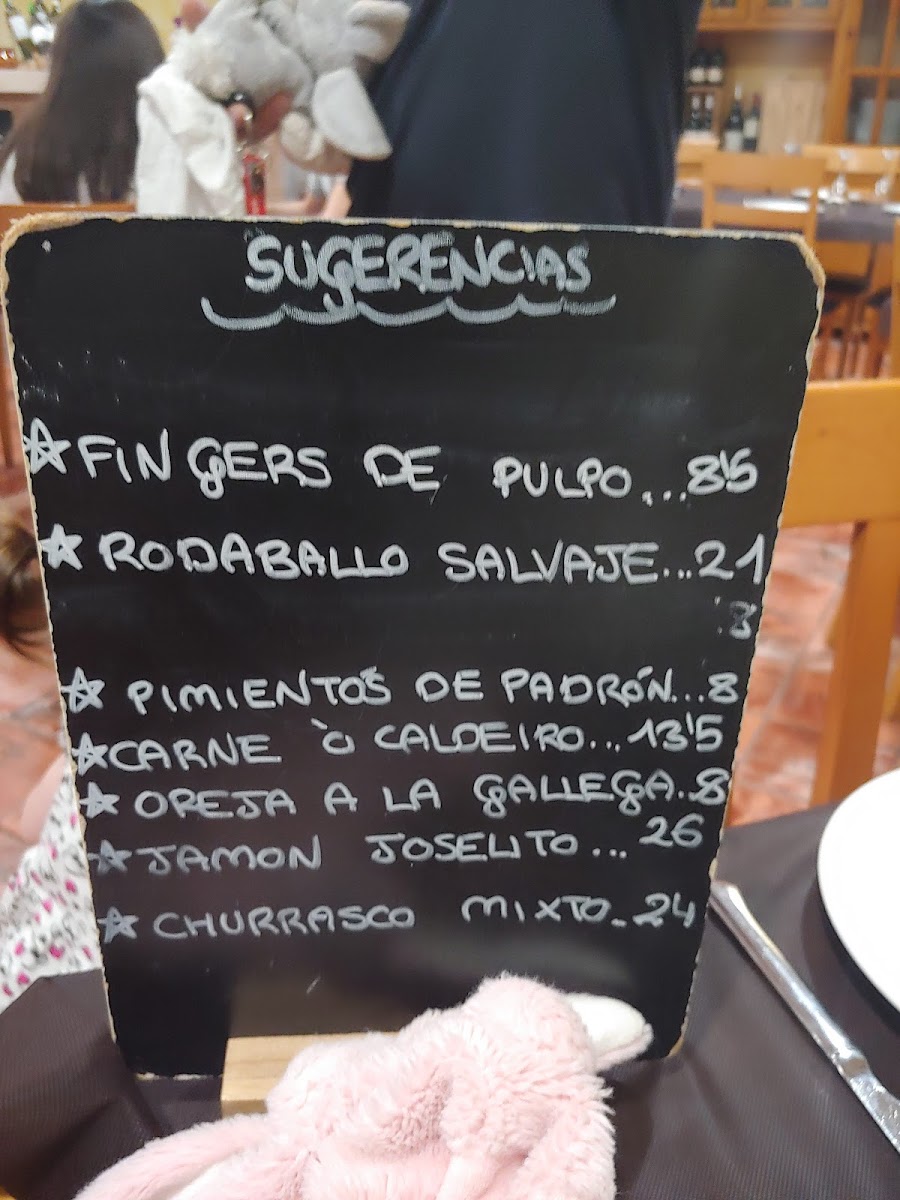 SUGERENCIAS
☆FINGERS DE PULPO...8'5
☆RODABALLO SALVAJE...21
8
☆PIMIENTOS DE PADRÓN...8
☆CARNE Ò CALDEIRO...13'5
☆OREJA A LA GALLEGA..8
☆JAMON JOSELITO...26
☆CHURRASCO MIXTO_24